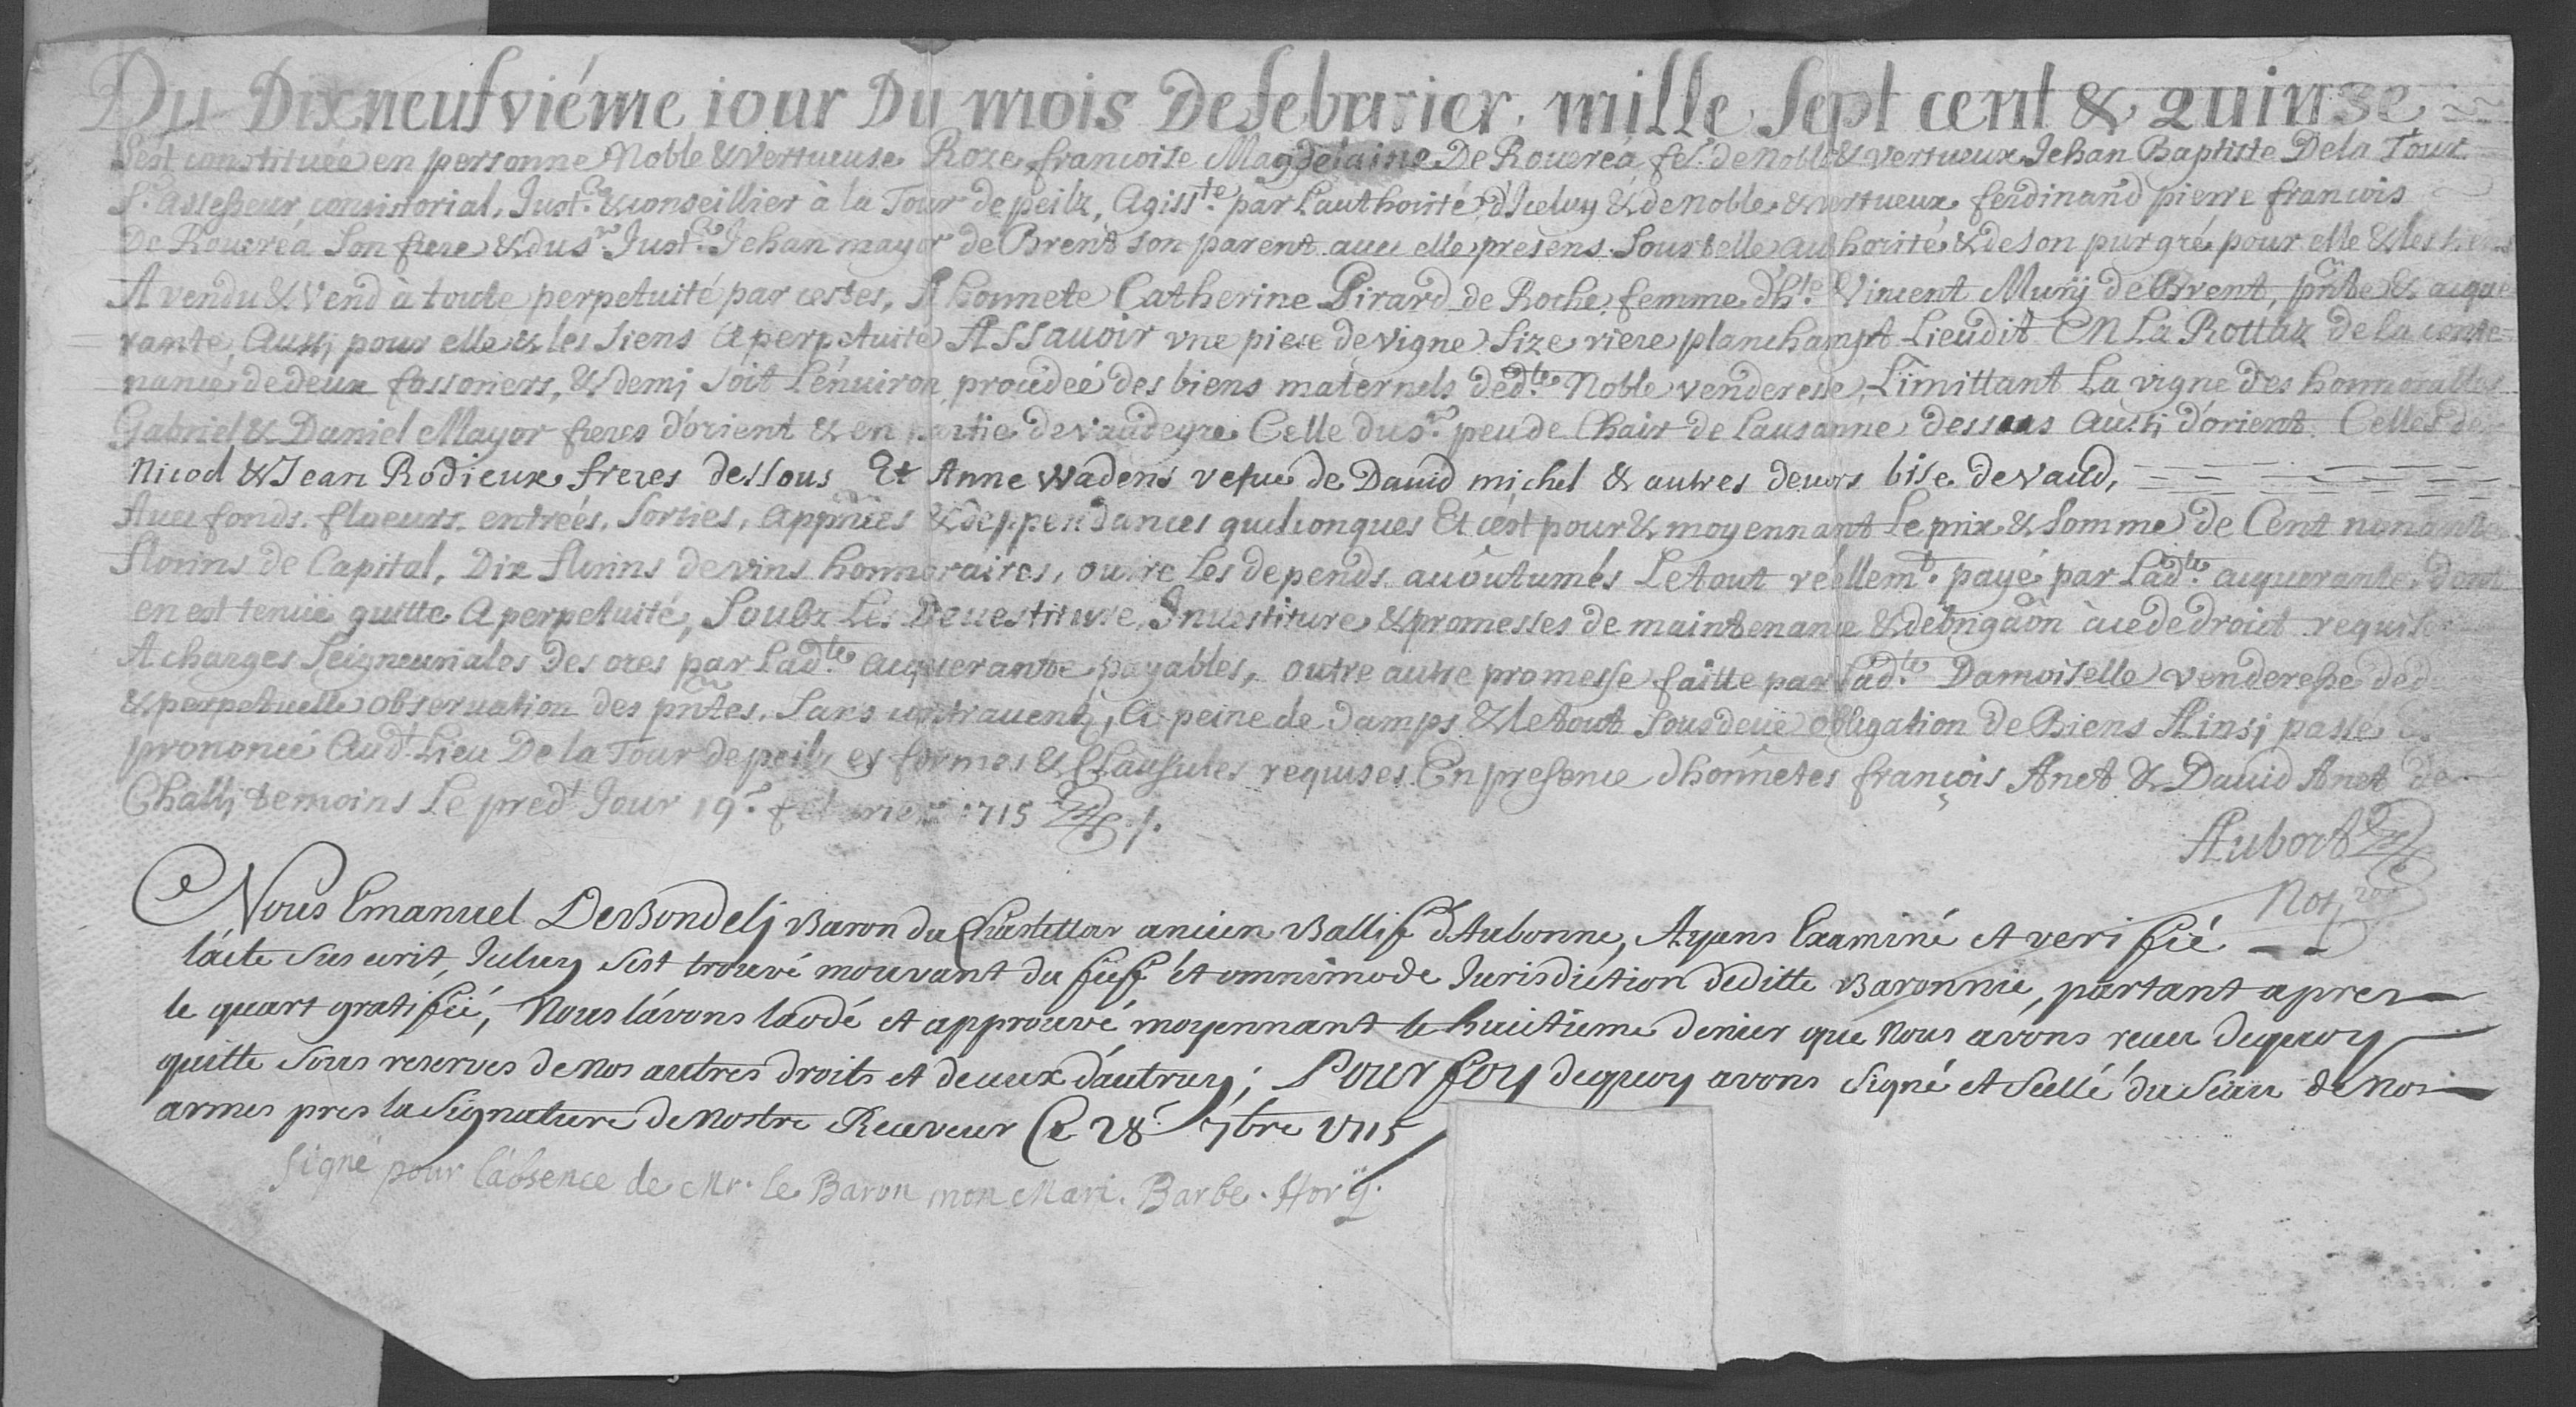 Du Dixneufviéme iour Du mois De febvrier, mille Sept cent & quinse
S'est constituée en personne Noble & Vertueuse Roze francoise Magdelaine De Roueréa fe.e de Noble & vertueux Jehan Baptiste De la Tour
S.r assesseur consistorial, Just.er & conseillier à la Tour de peilz, Agiss.te par Lauthorité d'Iceluy & de Noble & vertueux ferdinand pierre francois
De Roueréa Son frere & du s.r Just.er Jehan mayor de Brent son parent auec elle presens. Sous telle authorité & de son pur gré pour elle & les siens
A vendu & Vend à toute perpetuité par cestes, A honnete Catherine Pirard de Roche femme d'h.te Vincent Murij de Brent, pnte & acque
rante, Aussi pour elle & les Siens A perpetuité ASSauoir vne piece de vigne Size riere planchampt Lieudit EN La Rottaz de la conte
nance de deux fossoriers, & demj Soit Lénuiron, procedeé des biens maternels déd.te Noble venderesse, Limittant La vigne des honnorables
Gabriel & Daniel Mayor freres d'orient & en partie de vaudeyre Celle du s.r peu de Chair de Lausanne dessus Aussi d'orient. Celles de
Nicod & Jean Rodieux freres dessous Et Anne Wadens vefue de Dauid michel & autres deuers bise de vaud,
Auec fonds, flueurs, entrées, Sorties, appñces & deppendances quelconques Et cést pour & moyennant Le prix & Somme de Cent nonante
florins de Capital, Dix florins de vins honnoraires, outre Les depends acoûtumés Le tout réellem.t payé par Lad.te acquerante, dont
en est tenüe quitte A perpetuité, Soubz Les Deuestiture, Inuestiture & promesses de maintenance & debrigãon à ce de droit requise
A charges Seigneuriales des ores par Lad.te acquerante payables, outre autre promesse faitte par Lad.te Damoiselle venderesse ded
& perpetuelle observation des pntes, Sans contrauenir, A peine de damps & le tout Sous deüe obligation de Biens Ainsj passé &
prononcé Aud.t Lieu De la Tour de peilz es formes & Clausules requises En presence d'honnêtes françois Anet & Dauid Anet de
Challi temoins Le pred.t Jour 19.e febvrier 1715
Aubort
Not.re
Nous Emanuel De Bondelj Baron du Chastellar ancien Ballif d'Aubonne, Ayans Examiné et verifié
lácte sus ecrit, Iceluy s'est trouvé mouvant du fief et omnimode Jurisdiction deditte Baronnie, partant apres
le quart gratifié, Nous lávons laodé et approuvé moyennant le huitieme denier que Nous avons receu dequoy
quitte sous reserves de nos autres droits et de ceux dáutruy; Pour foy dequoy avons Signé et Scellé du Sceau de Nos
armes pres la Signature de Nostre Receveur Ce 28.e 7bre 1715
Signé pour lábsence de Mr. le Baron mon Mari. Barbe. Horÿ.